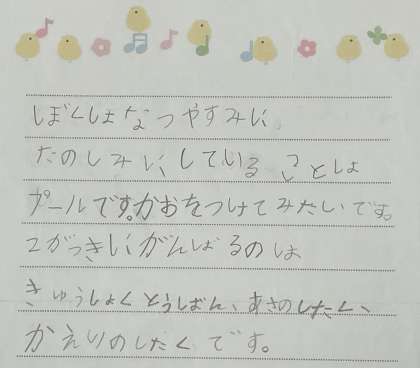 ぼくはなつやすみに
たのしみにしていることは
プールです。かおをつけてみたいです。
2がっきにがんばるのは
きゅうしょくとうばん、あさのしたく、
かえりのしたくです。